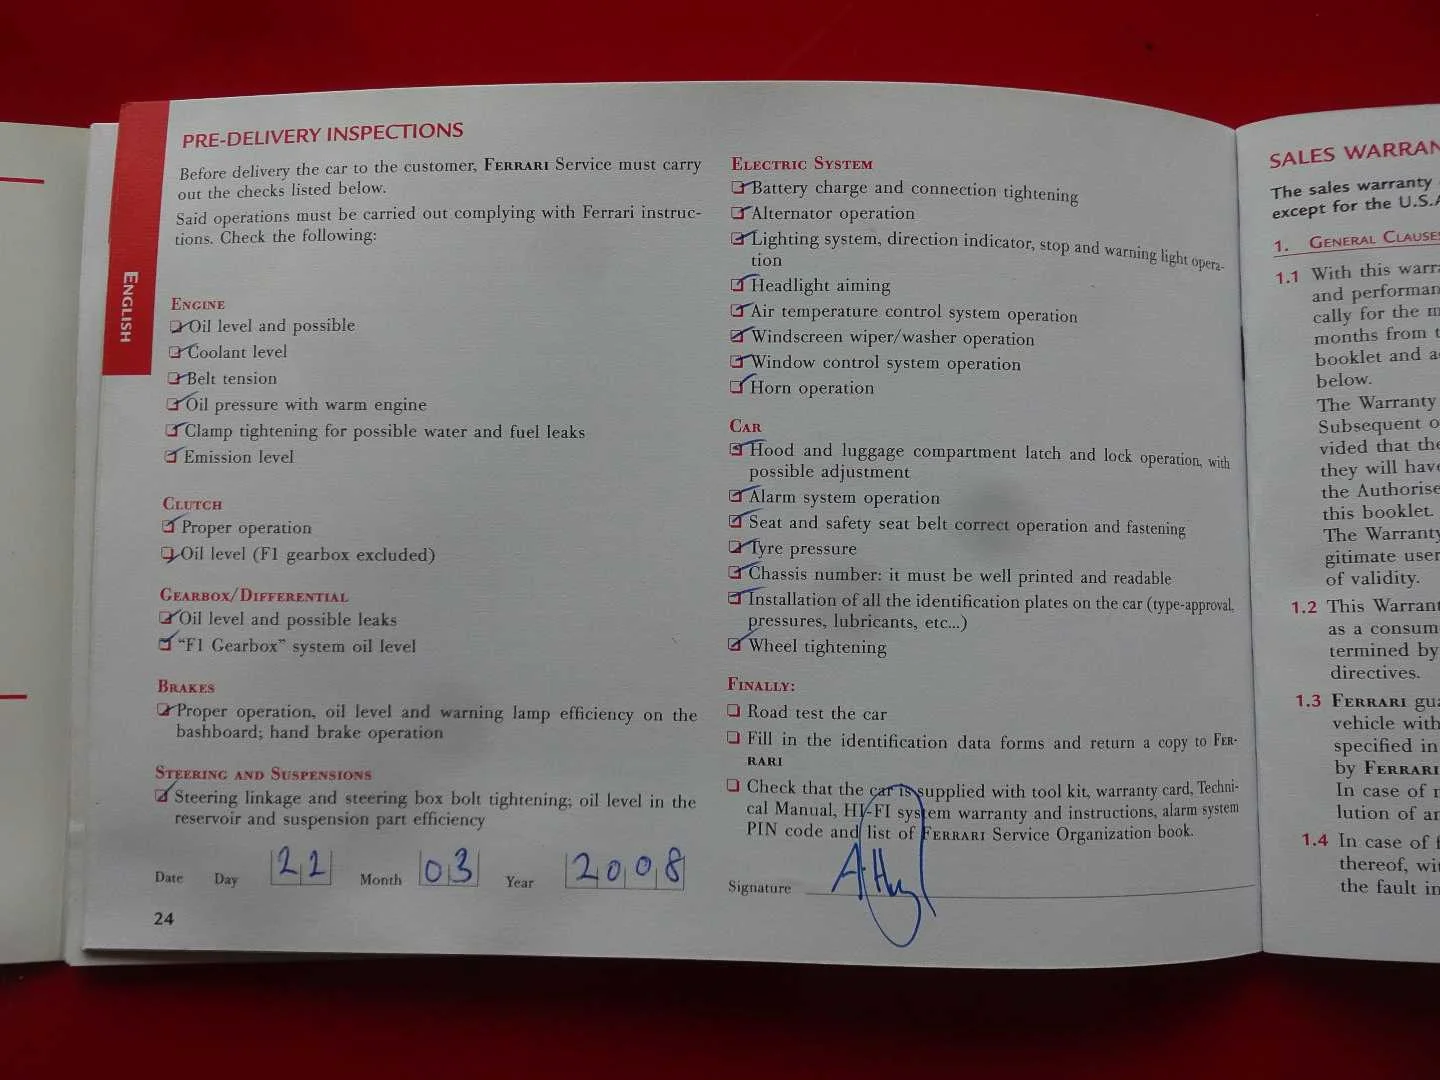 ENGLISH
PRE-DELIVERY INSPECTIONS
Before delivery the car to the customer, FERRARI Service must carry
out the checks listed below.
Said operations must be carried out complying with Ferrari instruc-
tions. Check the following:
ENGINE
Oil level and possible
Coolant level
Belt tension
Oil pressure with warm engine
Clamp tightening for possible water and fuel leaks
Emission level
CLUTCH
Proper operation
Oil level (F1 gearbox excluded)
GEARBOX/DIFFERENTIAL
Oil level and possible leaks
"F1 Gearbox" system oil level
BRAKES
Proper operation, oil level and warning lamp efficiency on the
bashboard; hand brake operation
STEERING AND SUSPENSIONS
Steering linkage and steering box bolt tightening; oil level in the
reservoir and suspension part efficiency
Date Day 22 Month 03 Year 2008
24
ELECTRIC SYSTEM
Battery charge and connection tightening
Alternator operation
Lighting system, direction indicator, stop and warning light opera-
tion
Headlight aiming
Air temperature control system operation
Windscreen wiper/washer operation
Window control system operation
Horn operation
CAR
Hood and luggage compartment latch and lock operation, with
possible adjustment
Alarm system operation
Seat and safety seat belt correct operation and fastening
Tyre pressure
Chassis number: it must be well printed and readable
Installation of all the identification plates on the car (type-approval,
pressures, lubricants, etc...)
Wheel tightening
FINALLY:
Road test the car
Fill in the identification data forms and return a copy to FER-
RARI
Check that the car is supplied with tool kit, warranty card, Techni-
cal Manual, HI-FI system warranty and instructions, alarm system
PIN code and list of FERRARI Service Organization book.
Signature
SALES WARRAN
The sales warranty
except for the U.S.A
1. GENERAL CLAUSES
1.1 With this warra
and performan
cally for the m
months from t
booklet and a
below.
The Warranty
Subsequent o
vided that the
they will have
the Authorise
this booklet.
The Warranty
gitimate user
of validity.
1.2 This Warrant
as a consum
termined by
directives.
1.3 FERRARI gua
vehicle with
specified in
by FERRARI
In case of r
lution of ar
1.4 In case of f
thereof, wi
the fault in